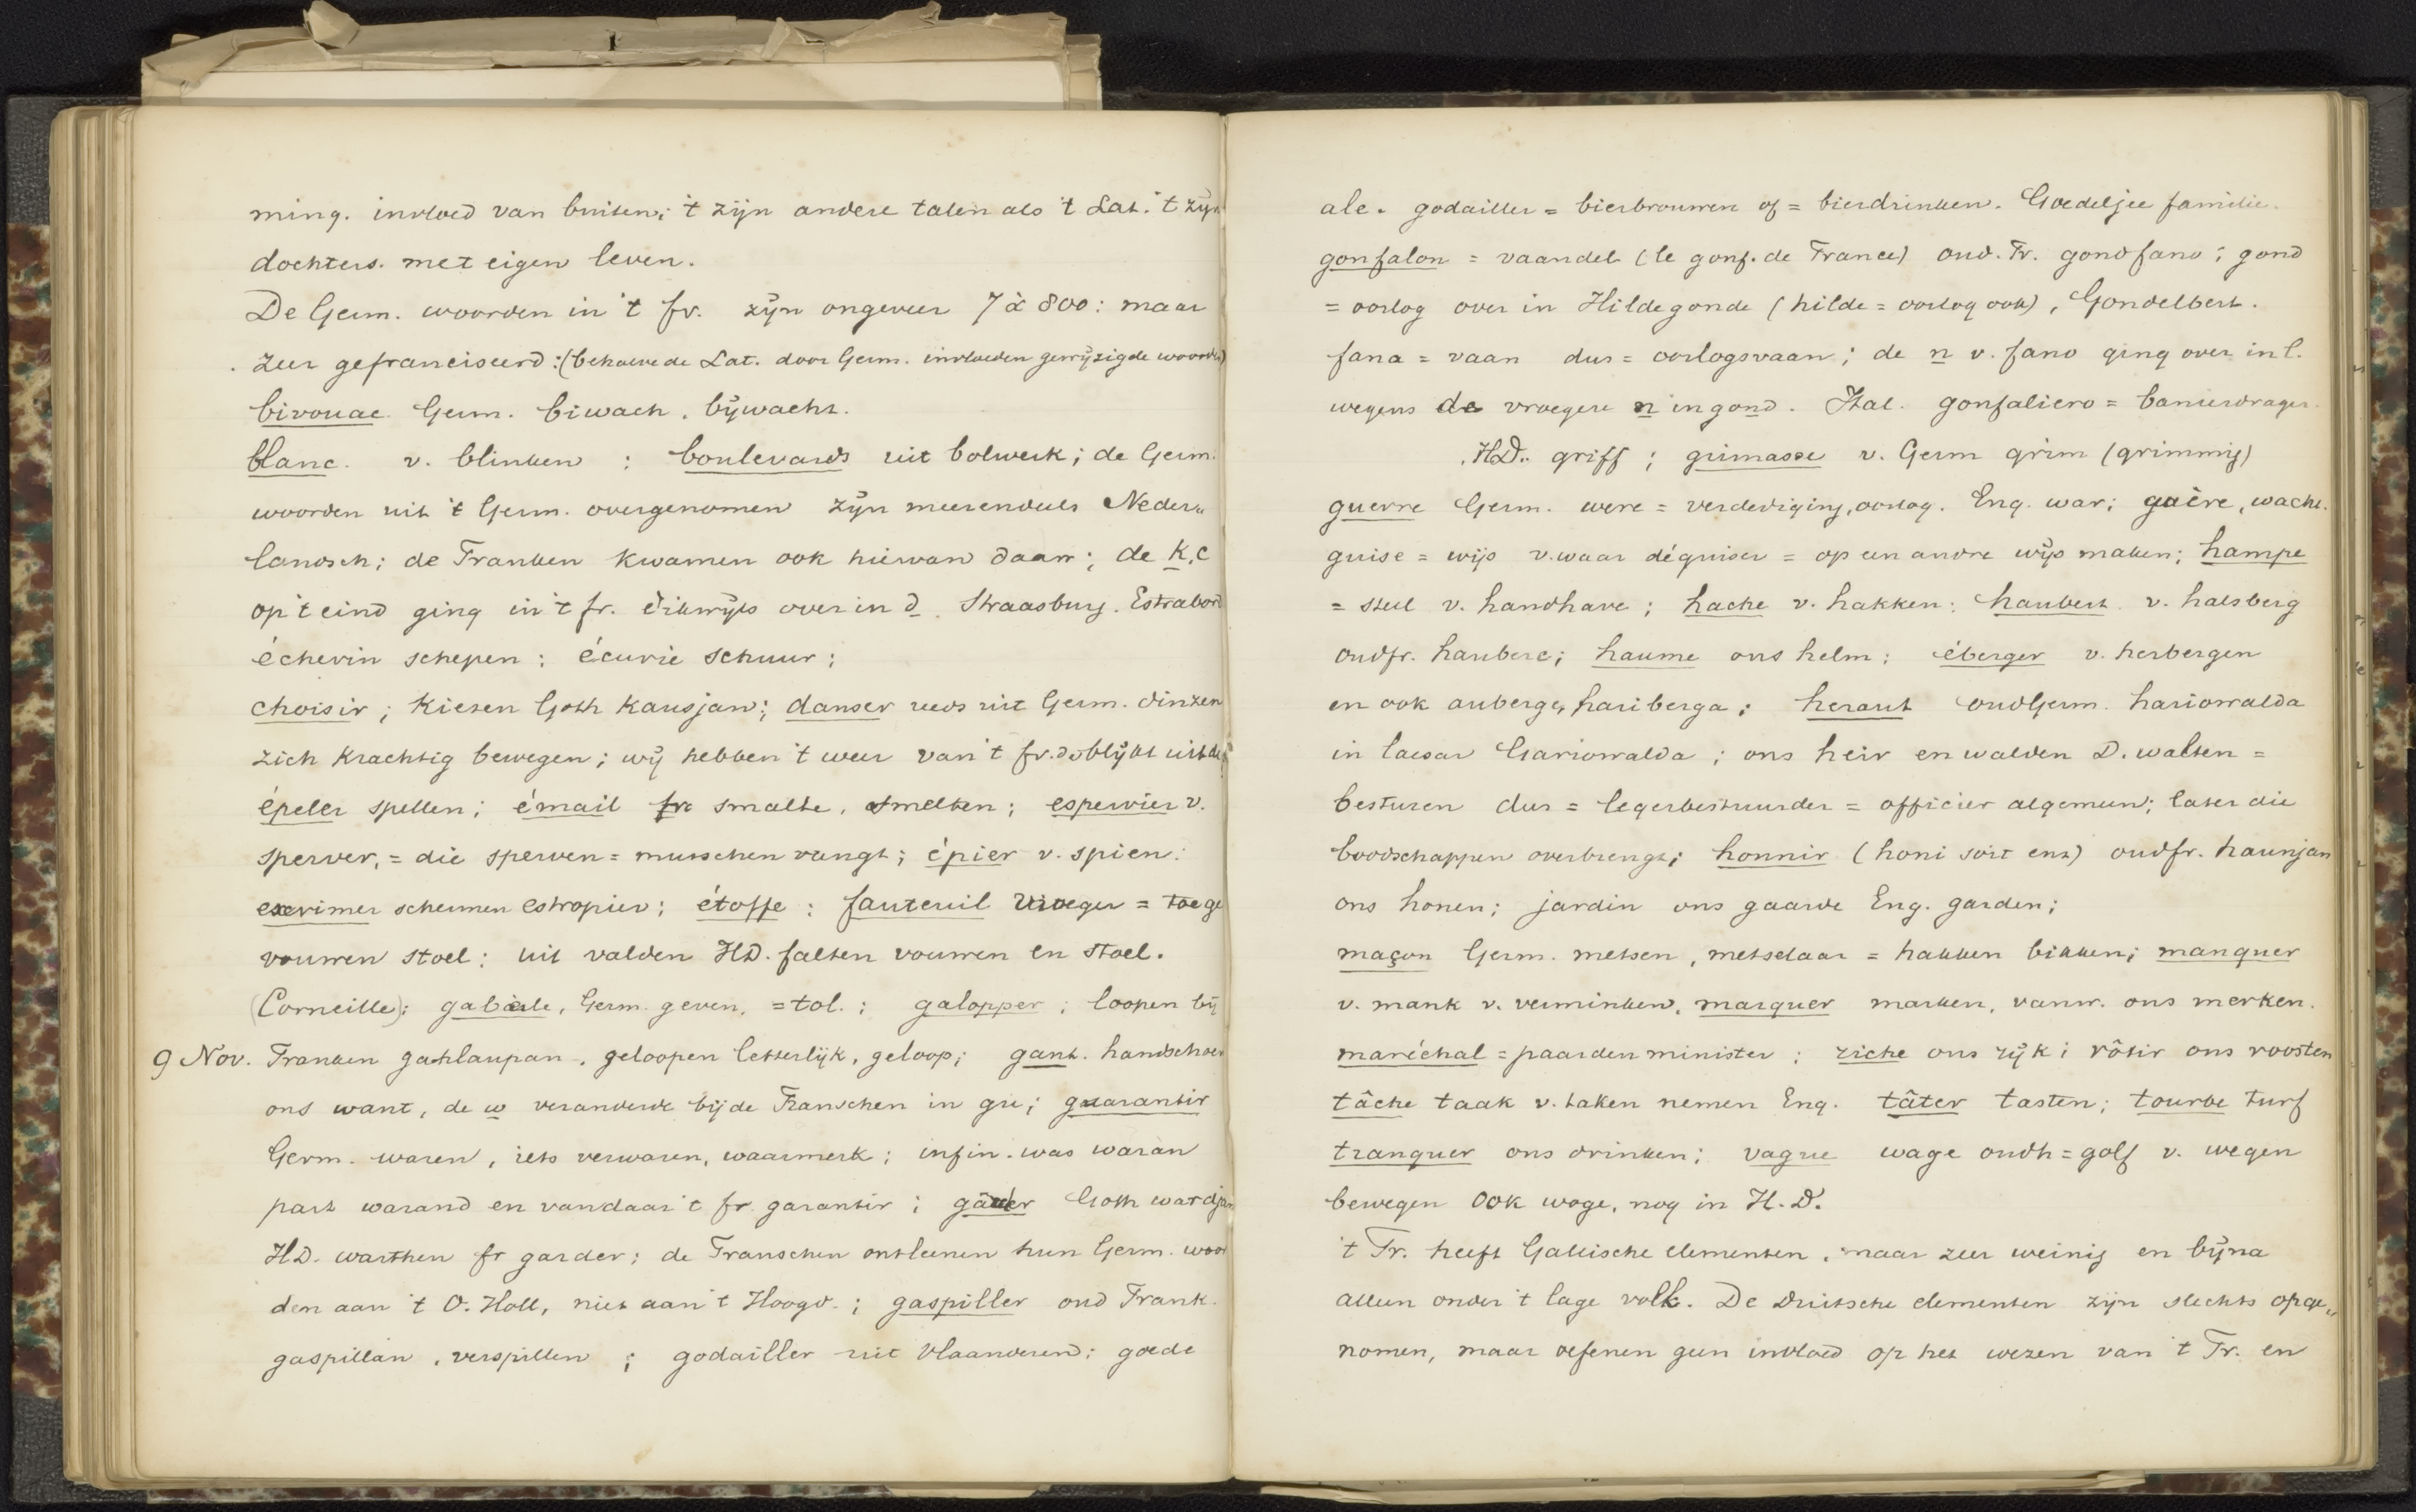 ming. invloed van buiten; 't zijn andere talen als 't Lat. 't zijn
dochters. met eigen leven.
De Germ. woorden in 't fr. zijn ongeveer 7 à 800: maar
zeer gefranciseerd: (behalve de Lat. door Germ. invloeden gewijzigde woorden)
bivouac Germ. biwach, bijwacht.
blanc. v. blinken ; boulevards uit bolwerk; de Germ.
woorden uit 't Germ. overgenomen zijn meerendeels Neder„
landsch; de Franken kwamen ook hiervan daan; de k, c
op 't eind ging in 't fr. dikwijls over in d. Straasburg. Estrabord
échevin schepen; écurie schuur;
choisir; kiezen Goth kausjan; danser reeds uit Germ. dinzen
zich krachtig bewegen; wij hebben 't weer van 't fr. blijkt uit de
épeler spellen; émail smalte, smelten; espervier v.
sperver, = die sperven = musschen vangt; épier v. spien.
escrimer schermen estropier; étoffe; fauteuil vroeger = toege
vouwen stoel; uit valden HD. falten vouwen en stoel.
(Corneille); gabèle, Germ. geven, = tol.; galopper; loopen bij
9 Nov. Franken gahlaupan, geloopen letterlijk, geloop; gant. handschoen
ons want, de w veranderde bij de Franschen in gu; guarantir
Germ. waren, iets verwaren, waarmerk; infin. was waran
part warand en vandaar 't fr garantir; Goth wardjan
HD. warthen fr garder; de Franschen ontleenen hun Germ. woor
den aan 't O. Holl, niet aan 't Hoogd.; gaspiller oud Frank.
gaspillan, verspillen; godailler uit Vlaanderen; goede
ale. godailler = bierbrouwen of = bierdrinken. Goedeljee familie.
gonfalon = vaandel (le gonf. de France) oud. Fr. gondfano; gond
= oorlog over in Hildegonde (hilde = oorlog ook), Gondelbert.
fana = vaan dus = oorlogsvaan; de n v. fano ging over in l.
wegens de vroegere n in gond. Ital. gonfaliero = banierdrager.
HD. griff; grimasse v. Germ grim (grimmig)
guerre Germ. were = verdediging, oorlog. Eng. war; guère, wacht.
guise = wijs v. waar déguiser = op een andre wijs maken; hampe
= steel v. handhave; hache v. hakken; haubert v. halsberg
oudfr. hauberc; haume ons helm; éberger v. herbergen
en ook auberge, hariberga; heraut oudGerm. hariowalda
in Caesar Gariowalda; ons heir en walden D. walten =
besturen dus = legerbestuurder = officier algemeen; later die
boodschappen overbrengt; honnir (honi soit enz) oudfr. haunjan
ons honen; jardin ons gaarde Eng. garden;
maçon Germ. metsen, metselaar = hakken bikken; manquer
v. mank v. verminken, marquer marken, vanw. ons merken.
maréchal = paardenminister; riche ons rijk; rôtir ons roosten
tâche taak v. taken nemen Eng. tâter tasten; tourbe turf
tranquer ons drinken; vague wage oudh = golf v. wegen
bewegen ook woge, nog in H.D.
't Fr. heeft Gallische elementen, maar zeer weinig en bijna
alleen onder 't lage volk. De Duitsche elementen zijn slechts opge„
nomen, maar oefenen geen invloed op het wezen van 't Fr. en